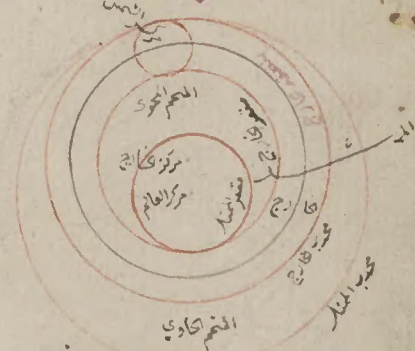 الشمس
المتمم المحوى
مركز خارج
مركز العالم
مقعر الممثل
مقعر خارج
خارج
محدب خارج
محدب الممثل
المتمم الحاوي